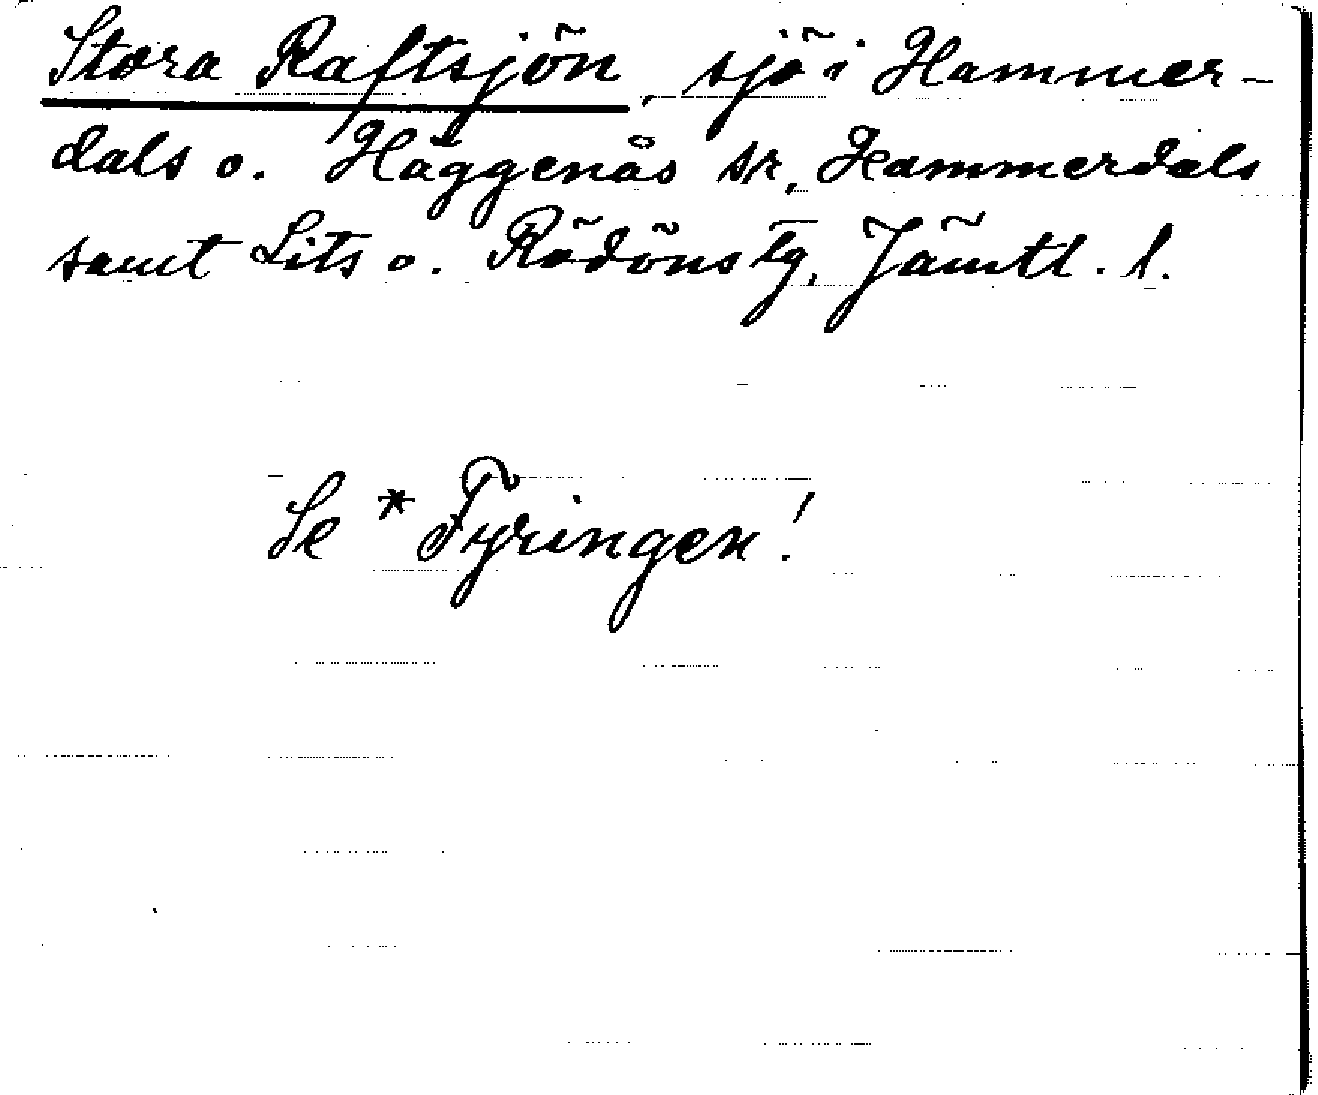 Stora Raftsjön, sjö i Hammer-
dals o. Häggenås sr, Hammerdals
samt Lits o. Rödöns tg, Jämtl. l.
Se *Fyringen!